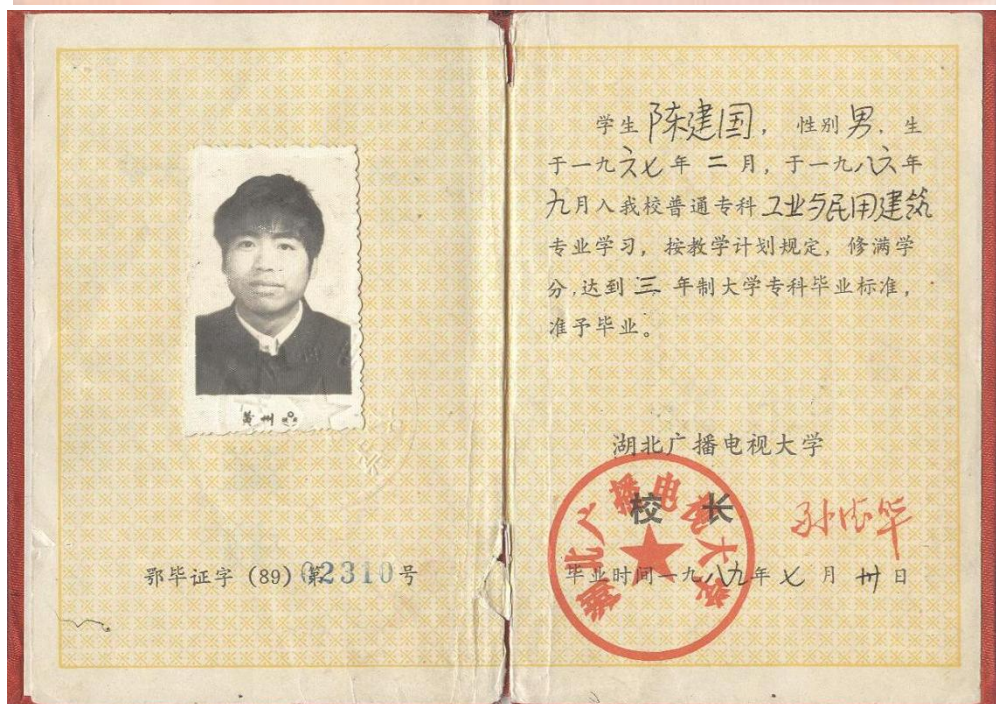 鄂毕证字 (89) 第02310号
学生 陈建国, 性别 男, 生
于一九六七年 二 月, 于一九八六年
九月入我校普通专科 工业与民用建筑
专业学习, 按教学计划规定, 修满学
分, 达到 三 年制大学专科毕业标准,
准予毕业。
湖北广播电视大学
校 长
湖北广播电视大学
毕业时间一九八九年 七 月 卅 日